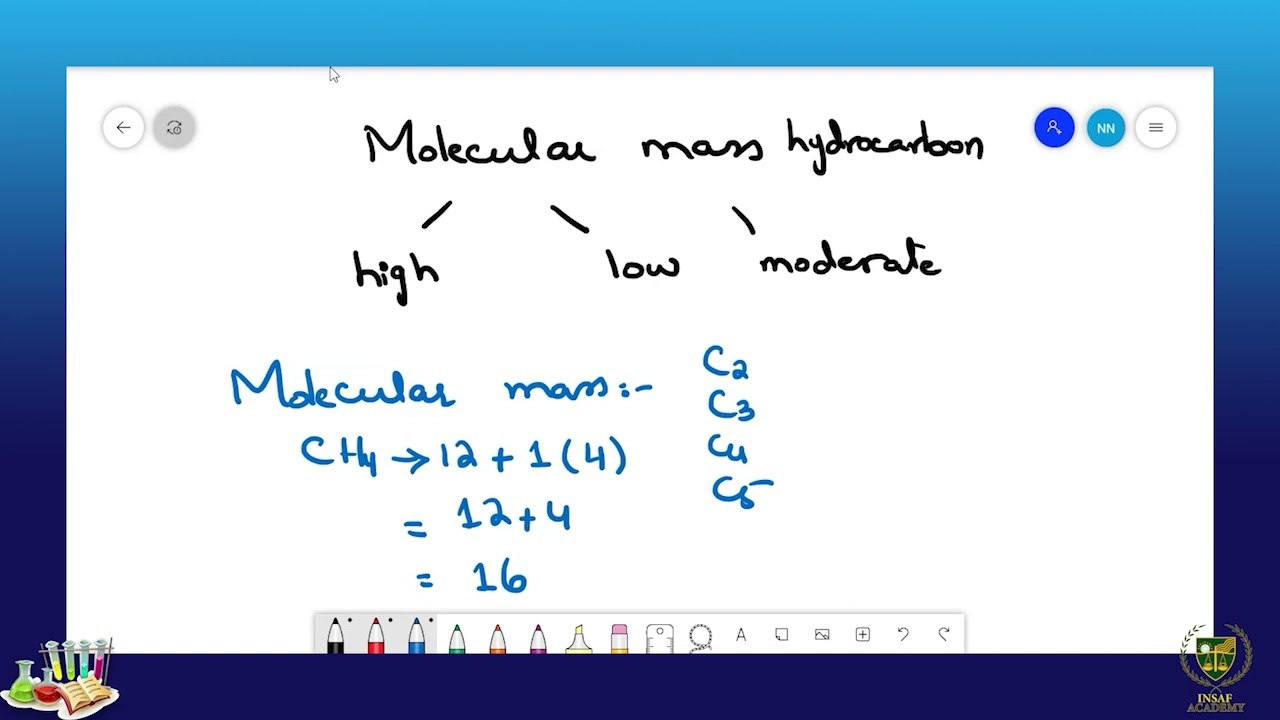 Molecular mass hydrocarbon
high low moderate
Molecular mass:-
CH4 → 12 + 1(4)
= 12+4
= 16
C2
C3
C4
C5
NN
A
INSAF
ACADEMY